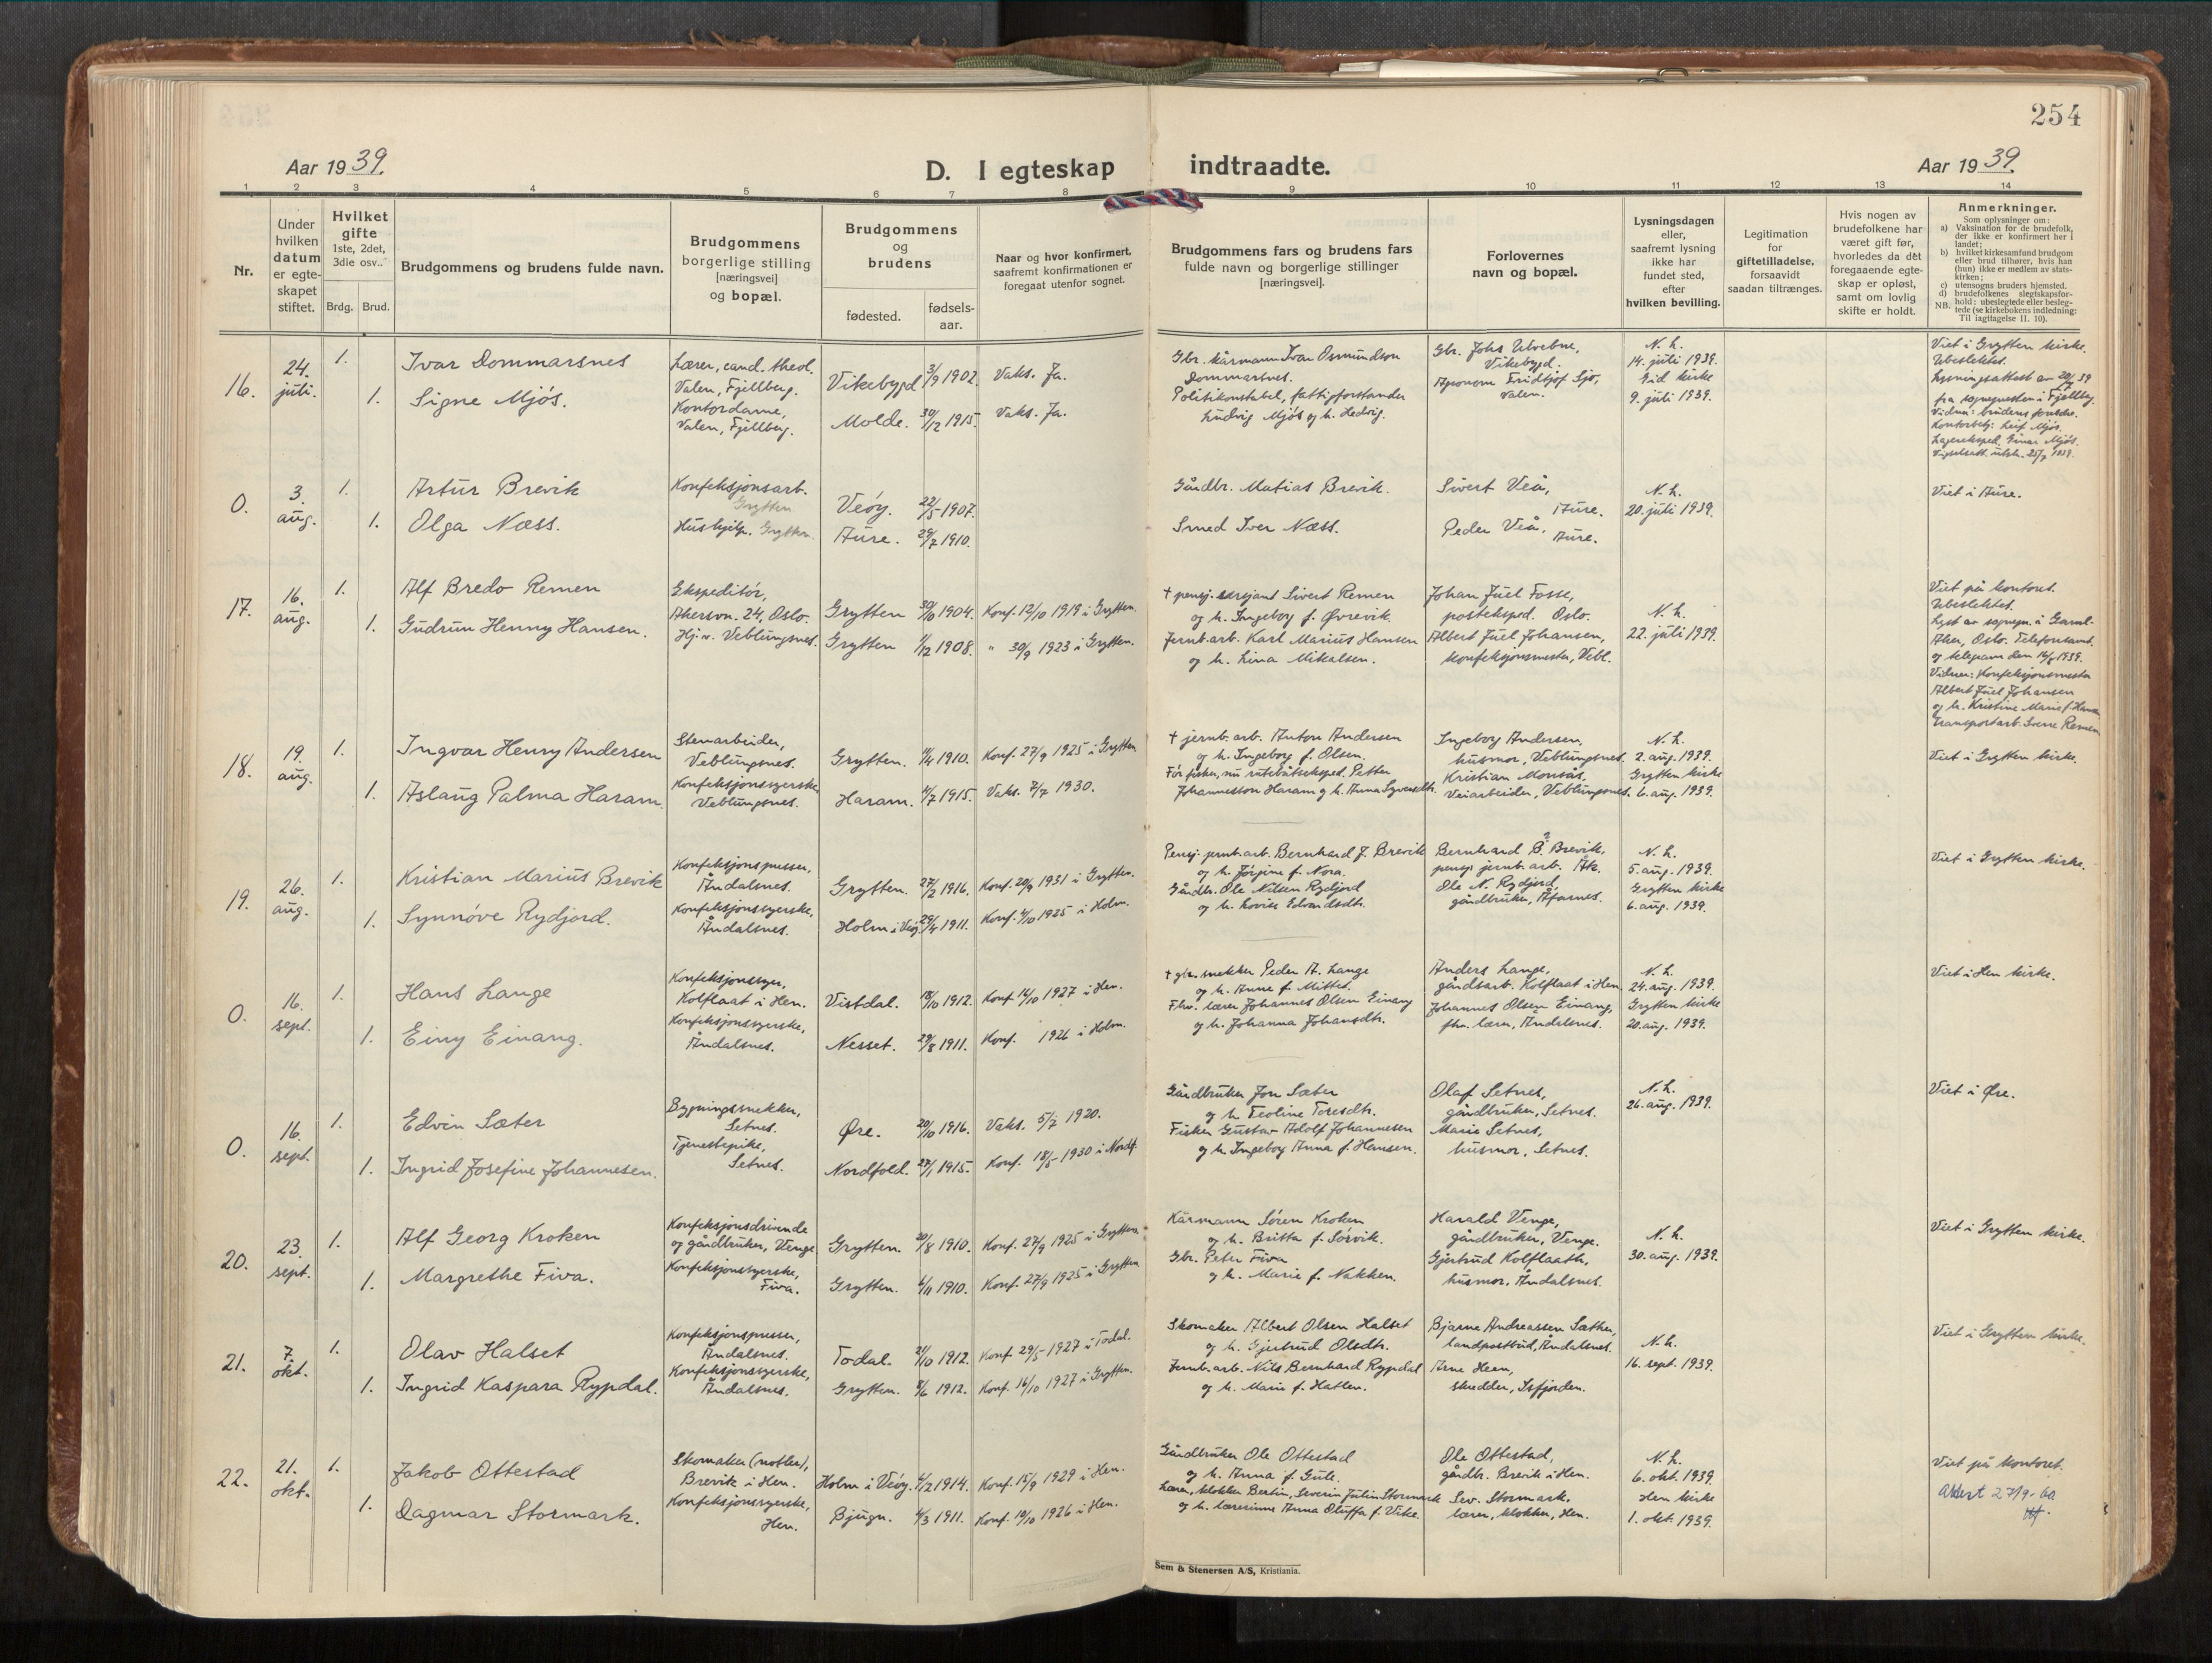 254
Aar 1939.
D. I egteskap indtraadte.
Aar 1939.
1 2 3 4 5 6 7 8 9 10 11 12 13 14
Nr.
Under
hvilken
datum
er egte-
skapet
stiftet.
Hvilket
gifte
1ste, 2det,
3die osv..
Brdg. Brud.
Brudgommens og brudens fulde navn.
Brudgommens
borgerlige stilling
[næringsvei]
og bopæl.
Brudgommens
og
brudens
fødested.
fødsels-
aar.
Naar og hvor konfirmert,
saafremt konfirmationen er
foregaat utenfor sognet.
Brudgommens fars og brudens fars
fulde navn og borgerlige stillinger
[næringsvei].
Forlovernes
navn og bopæl.
Lysningsdagen
eller,
saafremt lysning
ikke har
fundet sted,
efter
hvilken bevilling.
Legitimation
for
giftetilladelse,
forsaavidt
saadan tiltrænges.
Hvis nogen av
brudefolkene har
været gift før,
hvorledes da det
foregaaende egte-
skap er opløst,
samt om lovlig
skifte er holdt.
Anmerkninger.
Som oplysninger om:
a) Vaksination for de brudefolk,
der ikke er konfirmert her i
landet;
b) hvilket kirkesamfund brudgom
eller brud tilhører, hvis han
(hun) ikke er medlem av stats-
kirken;
c) utensogns bruders hjemsted.
d) brudefolkenes slegtskapsfor-
hold: ubeslegtede eller besleg-
NB. tede (se kirkebokens indledning:
Til iagttagelse II. 10).
16.
24.
juli.
1.
1.
Ivar Dommarsnes
Signe Mjós.
Lærer, cand. theol.
Valen, Fjellberg.
Kontordame,
Valen, Fjellberg.
Vikebygd 3/9 1902.
Molde. 30/12 1915.
Vaks. Ja.
Vaks. Ja.
Gbr. kårmann Ivar Osmundson
Dommarsnes.
Politikonstabel, fattigforstander
Ludvig Mjós og h. Hedvig.
Gbr. Johs Ulvebne,
Vikebygd.
Agronom Fridtjof Sjo,
Valen.
N. h.
14. juli 1939.
Eid kirke
9. juli 1939.
Viet i Grytten kirke.
Ubeslektet.
Lysningsattest av 20/7 39
fra sognepresten i Fjellberg.
Vidner: brudens foreldre.
Kontorbetj: Leif Mjós.
Lagereksped. Einar Mjós.
Vigselsatt. utst. 25/7 1939.
0.
3.
aug.
1.
1.
Artur Brevik
Olga Næss.
Konfeksjonsarb.
Grytten
Hushjelp. Grytten.
Veóy. 22/5 1907.
Aure. 29/7 1910.
Gårdbr. Matias Brevik.
Smed Iver Næss.
Sivert Veå,
Aure.
Peder Veå,
Aure.
N. h.
20. juli 1939.
Viet i Aure.
17.
16.
aug.
1.
1.
Alf Bredo Remen
Gudrun Henny Hansen.
Ekspeditór,
Akersvn. 24, Oslo.
Hj.v. Veblungsnes.
Grytten 30/10 1904.
Grytten 1/12 1908.
Konf. 12/10 1919 i Grytten.
" 30/9 1923 i Grytten.
† pensj. sersjant Sivert Remen
og h. Ingeborg f. Øvrevik.
Jernb.arb. Karl Marius Hansen
og h. Lina Mikalsen.
Johan Juel Fosse,
posteksped. Oslo.
Albert Juel Johansen,
konfeksjonsmester, Vebl.
N. h.
22. juli 1939.
Viet på kontoret.
Ubeslektet.
Lyst av sognepr. i Gaml.
Aker, Oslo. Telefonsamt.
og telegram den 16/8 1939.
Vidner: Konfeksjonsmester
Albert Juel Johansen
og h. Kristine Marie f. Hansen
Transportarb. Sverre Remen
18.
19.
aug.
1.
1.
Ingvar Henry Andersen
Aslaug Palma Haram.
Stenarbeider,
Veblungsnes.
Konfeksjonssyerske
Veblungsnes.
Grytten. 4/4 1910.
Haram. 4/7 1915.
Konf. 27/9 1925 i Grytten
Vaks. 7/7 1930.
† jernb. arb. Anton Andersen
og h. Ingeborg f. Olsen.
Fór fisker, nu rutebåteksped. Petter
Johannesson Haram og h. Anna Syversdtr.
Ingeborg Andersen,
husmor, Veblungsnes.
Kristian Monsås,
Veiarbeider, Veblungsnes.
N. h.
2. aug. 1939.
Grytten kirke
6. aug. 1939.
Viet i Grytten kirke.
19.
26.
aug.
1.
1.
Kristian Marius Brevik
Synnóve Rydjord.
Konfeksjonspresser,
Åndalsnes.
Konfeksjonssyerske,
Åndalsnes.
Grytten. 27/2 1916.
Holm i Veóy. 29/4 1911.
Konf. 20/9 1931 i Grytten.
Konf. 4/10 1925 i Holm.
Pensj. jernb.arb. Bernhard J. Brevik
og h. Jórgine f. Nora.
Gårdbr. Ole Nilsen Rydjord
og h. Lovise Edvardsdtr.
Bernhard B. Brevik,
pensj. jernb. arb. Åk.
Ole N. Rydjord,
gårdbruker, Åfarnes.
N. h.
5. aug. 1939.
Grytten kirke
6. aug. 1939.
Viet i Grytten kirke.
0.
16.
sept.
1.
1.
Hans Lange
Einy Einang.
Konfeksjonssyer,
Kolflaat i Hen.
Konfeksjonssyerske,
Åndalsnes.
Vistdal. 18/10 1912.
Nesset. 29/8 1911.
Konf. 14/10 1927 i Hen.
Konf. 1926 i Holm.
† gbr. snekker Peder A. Lange
og h. Anne f. Mittet.
Fhv. lærer Johannes Olsen Einang
og h. Johanna Johansdtr.
Anders Lange,
gårdsarb. Kolflaat i Hen
Johannes Olsen Einang,
fhv. lærer, Åndalsnes.
N. h.
24. aug. 1939.
Grytten kirke
20. aug. 1939.
Viet i Hen kirke.
0.
16.
sept.
1.
1.
Edvin Sæter
Ingrid Josefine Johannesen.
Bygningssnekker,
Setnes.
Tjenestepike,
Setnes.
Øre. 20/10 1916.
Nordfold. 27/1 1915.
Vaks. 5/7 1920.
Konf. 18/5 1930 i Nordf.
Gårdbruker Jon Sæter
og h. Teoline Toresdtr.
Fisker Gustav Adolf Johannesen
og h. Ingeborg Anna f. Hansen.
Olaf Setnes,
gårdbruker, Setnes.
Marie Setnes,
husmor, Setnes.
N. h.
26. aug. 1939.
Viet i Øre.
20.
23.
sept.
1.
1.
Alf Georg Kroken
Margrethe Fiva.
Konfeksjonsdrivende
og gårdbruker, Venge
Konfeksjonssyerske,
Fiva.
Grytten. 20/8 1910.
Grytten. 4/11 1910.
Konf. 27/9 1925 i Grytten
Konf. 27/9 1925 i Grytten
Kårmann Sóren Kroken
og h. Britta f. Sórvik.
Gbr. Peter Fiva
og h. Marie f. Nakken.
Harald Venge,
gårdbruker, Venge.
Gjertrud Kolflaath,
husmor, Åndalsnes.
N. h.
30. aug. 1939.
Viet i Grytten kirke.
21.
7.
okt.
1.
1.
Olav Halset
Ingrid Kaspara Rypdal.
Konfeksjonspresser,
Åndalsnes.
Konfeksjonssyerske,
Åndalsnes.
Todal. 21/10 1912.
Grytten. 8/6 1912.
Konf. 29/5 1927 i Todal.
Konf. 16/10 1927 i Grytten.
Skomaker Albert Olsen Halset
og h. Gjertrud Olsdtr.
Jernb.arb. Nils Bernhard Rypdal
og h. Marie f. Hatlen.
Bjarne Andreassen Sæther,
landpostbud, Åndalsnes.
Arne Heen,
skredder, Isfjorden.
N. h.
16. sept. 1939.
Viet i Grytten kirke.
22.
21.
okt.
1.
1.
Jakob Ottestad
Dagmar Stormark.
Skomaker (notler),
Brevik i Hen.
Konfeksjonssyerske,
Hen.
Holm i Veóy. 4/2 1914.
Bjugn. 4/3 1911.
Konf. 15/9 1929 i Hen.
Konf. 10/10 1926 i Hen.
Gårdbruker Ole Ottestad
og h. Anna f. Gule.
Lærer, klokker Bertin, Severin Julin Stormark
og h. lærerinne Anna Oluffa f. Vike.
Ole Ottestad,
gårdb. Brevik i Hen.
Sev. Stormark,
lærer, klokker, Hen.
N. h.
6. okt. 1939.
Hen kirke
1. okt. 1939.
Viet på kontoret.
Attest 27/9-60
Sem & Stenersen A/S, Kristiania.